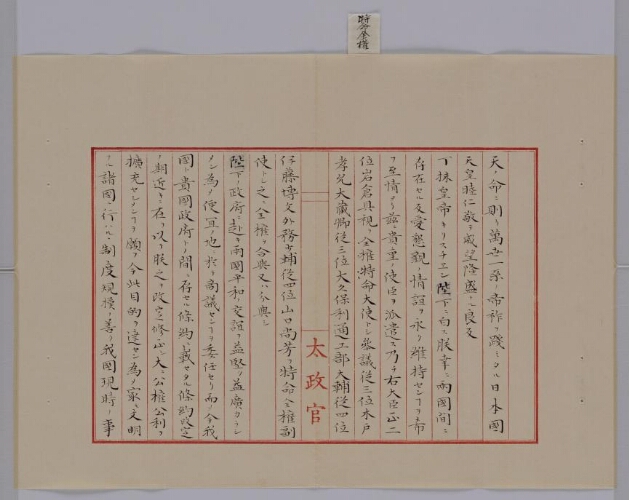 特命全権
天ノ命ニ則リ萬世一系ノ帝祚ヲ踐ミタル日本國
天皇睦仁敬テ威望隆盛ニ良友
丁抹皇帝キリスチエン陛下ニ白ス朕幸ニ両國間ニ
存在セル友愛懇親ノ情誼ヲ永ク維持センヿヲ希
フ至情ヨリ茲ニ貴重ノ使臣ヲ派遣ス乃チ右大臣正二
位岩倉具視ヲ全権特命大使トシ参議従三位木戸
孝允大蔵卿従三位大久保利通工部大輔従四位
太政官
伊藤博文外務少輔従四位山口尚芳ヲ特命全権副
使トシ之ニ全権ヲ合與又ハ分與シ
陛下ノ政府ニ赴キ両國平和ノ交誼ヲ益堅ク益廣カラシ
メン為ノ便宜ノ地ニ於テ商議センヿヲ委任セリ而シテ今我
國ト貴國政府トノ間ニ存セル條約ニ載セタル條約改定
ノ期近キニ在ルヲ以テ朕之ヲ改定修正シ大ニ公権公利ヲ
擴充セシメンヿヲ願フ今此目的ヲ達セン為メ文明
ナル諸國ニ行ハルヽ制度規模ノ善ク我國現時ノ事